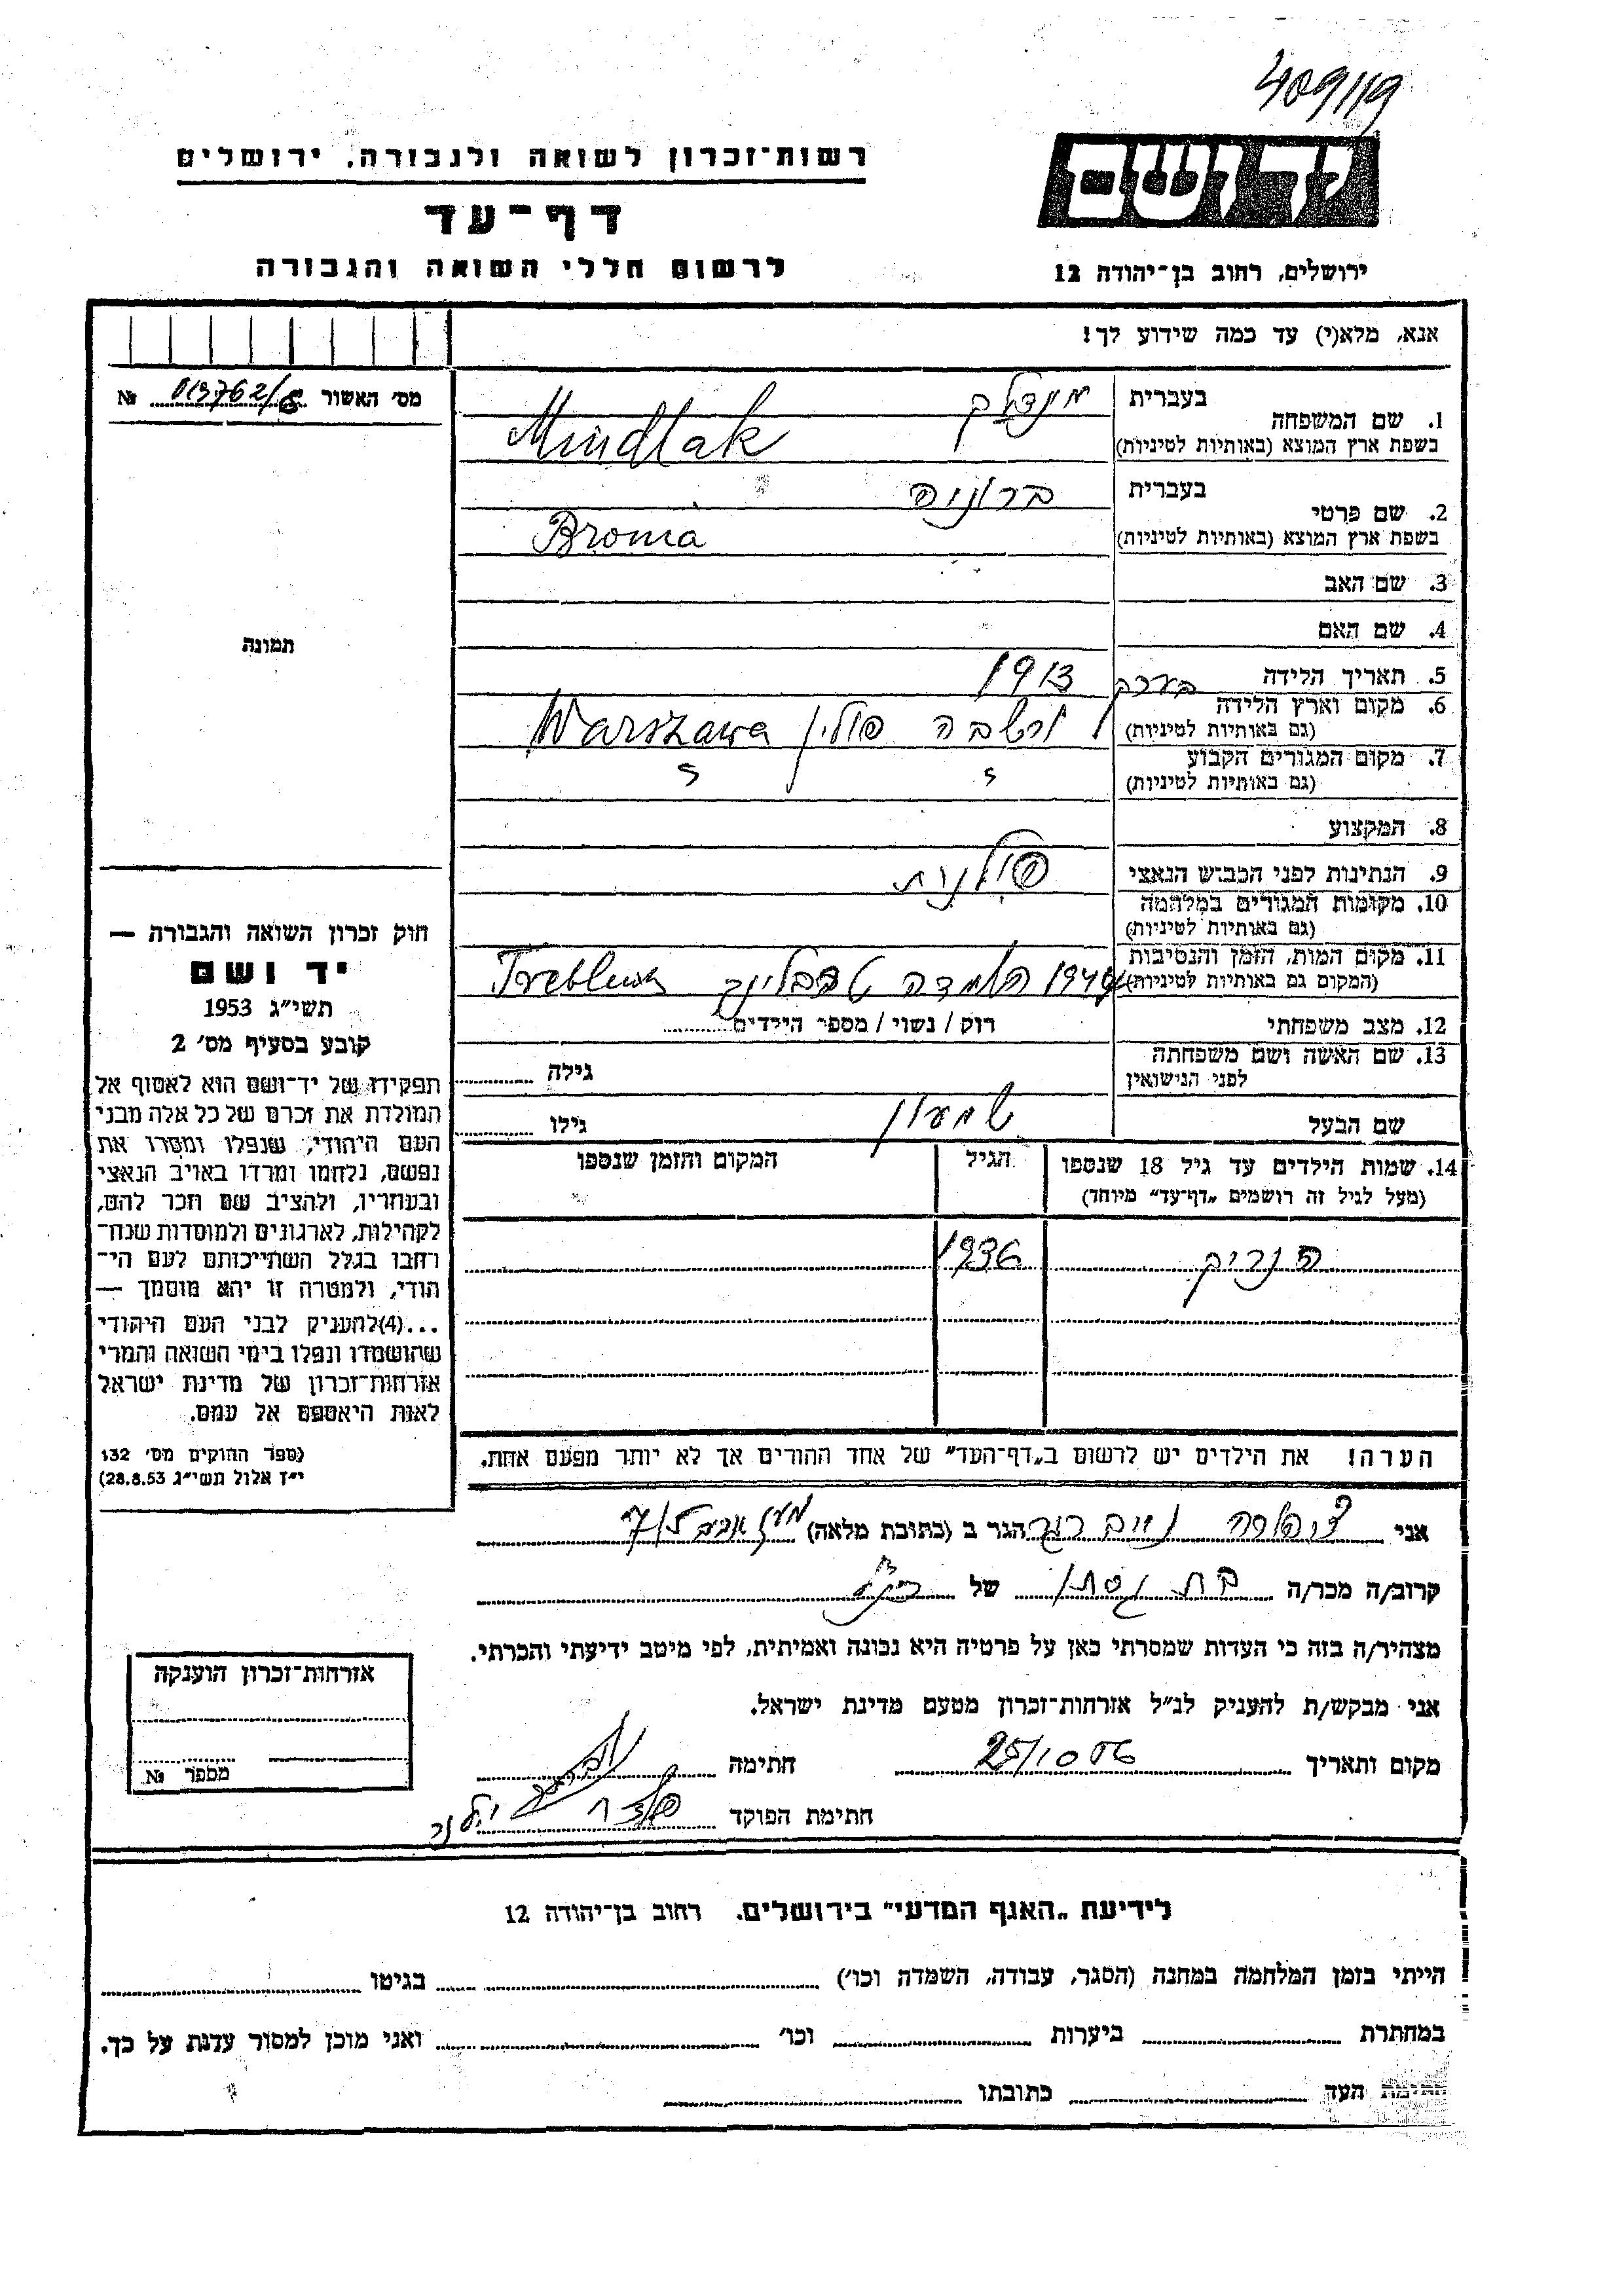 409/19
רשות־זכרון לשואה ולגבורה, ירושלים
יד ושם
דף־עד
לרשום חללי השואה והגבורה
ירושלים, רחוב בן־יהודה 12
אנא, מלא(י) עד כמה שידוע לך!
מס' האשור 113762/8 №
1. שם המשפחה
בעברית מינדלק
בשפת ארץ המוצא (באותיות לטיניות) Mindlak
2. שם פרטי
בעברית ברוניה
בשפת ארץ המוצא (באותיות לטיניות) Bronia
3. שם האב
4. שם האם
5. תאריך הלידה בערך 1913
6. מקום וארץ הלידה
(גם באותיות לטיניות) ורשבה פולין Warszawa
7. מקום המגורים הקבוע
(גם באותיות לטיניות)
8. המקצוע
9. הנתינות לפני הכבוש הנאצי פולנית
10. מקומות המגורים במלחמה
(גם באותיות לטיניות)
11. מקום המות, הזמן והנסיבות
(המקום גם באותיות לטיניות) השמדה טרבלינקה Treblinka
12. מצב משפחתי רוק / נשוי / מספר הילדים
13. שם האשה ושם משפחתה
לפני הנישואין גילה
שם הבעל שמעון גילו
14. שמות הילדים עד גיל 18 שנספו
(מעל לגיל זה רושמים „דף־עד" מיוחד)
הגיל
המקום והזמן שנספו
הנריק 1936
הערה! את הילדים יש לרשום ב„דף־העד" של אחד ההורים אך לא יותר מפעם אחת.
תמונה
חוק זכרון השואה והגבורה —
יד ושם
תשי"ג 1953
קובע בסעיף מס' 2
תפקידו של יד־ושם הוא לאסוף אל
המולדת את זכרם של כל אלה מבני
העם היהודי, שנפלו ומסרו את
נפשם, נלחמו ומרדו באויב הנאצי
ובעוזריו, ולהציב שם וזכר להם,
לקהילות, לארגונים ולמוסדות שנח־
רחבו בגלל השתייכותם לעם הי־
הודי, ולמטרה זו יהא מוסמך —
...(4) להעניק לבני העם היהודי
שהושמדו ונפלו בימי השואה והמרי
אזרחות־זכרון של מדינת ישראל
לאות היאספם אל עמם.
(ספר החוקים מס' 132
י"ז אלול תשי"ג 28.8.53)
אני צפורה הגר ב (כתובת מלאה)
קרוב/ה מכר/ה בת של
מצהיר/ה בזה כי העדות שמסרתי כאן על פרטיה היא נכונה ואמיתית, לפי מיטב ידיעתי והכרתי.
אני מבקש/ת להעניק לנ"ל אזרחות־זכרון מטעם מדינת ישראל.
מקום ותאריך 25/10 56 חתימה
חתימת הפוקד
אזרחות־זכרון הוענקה
מספר №
לידיעת „האגף המדעי" בירושלים. רחוב בן־יהודה 12
הייתי בזמן המלחמה במחנה (הסגר, עבודה, השמדה וכו') בגיטו
במחתרת ביערות וכו' ואני מוכן למסור עדות על כך.
חתימת העד כתובתו